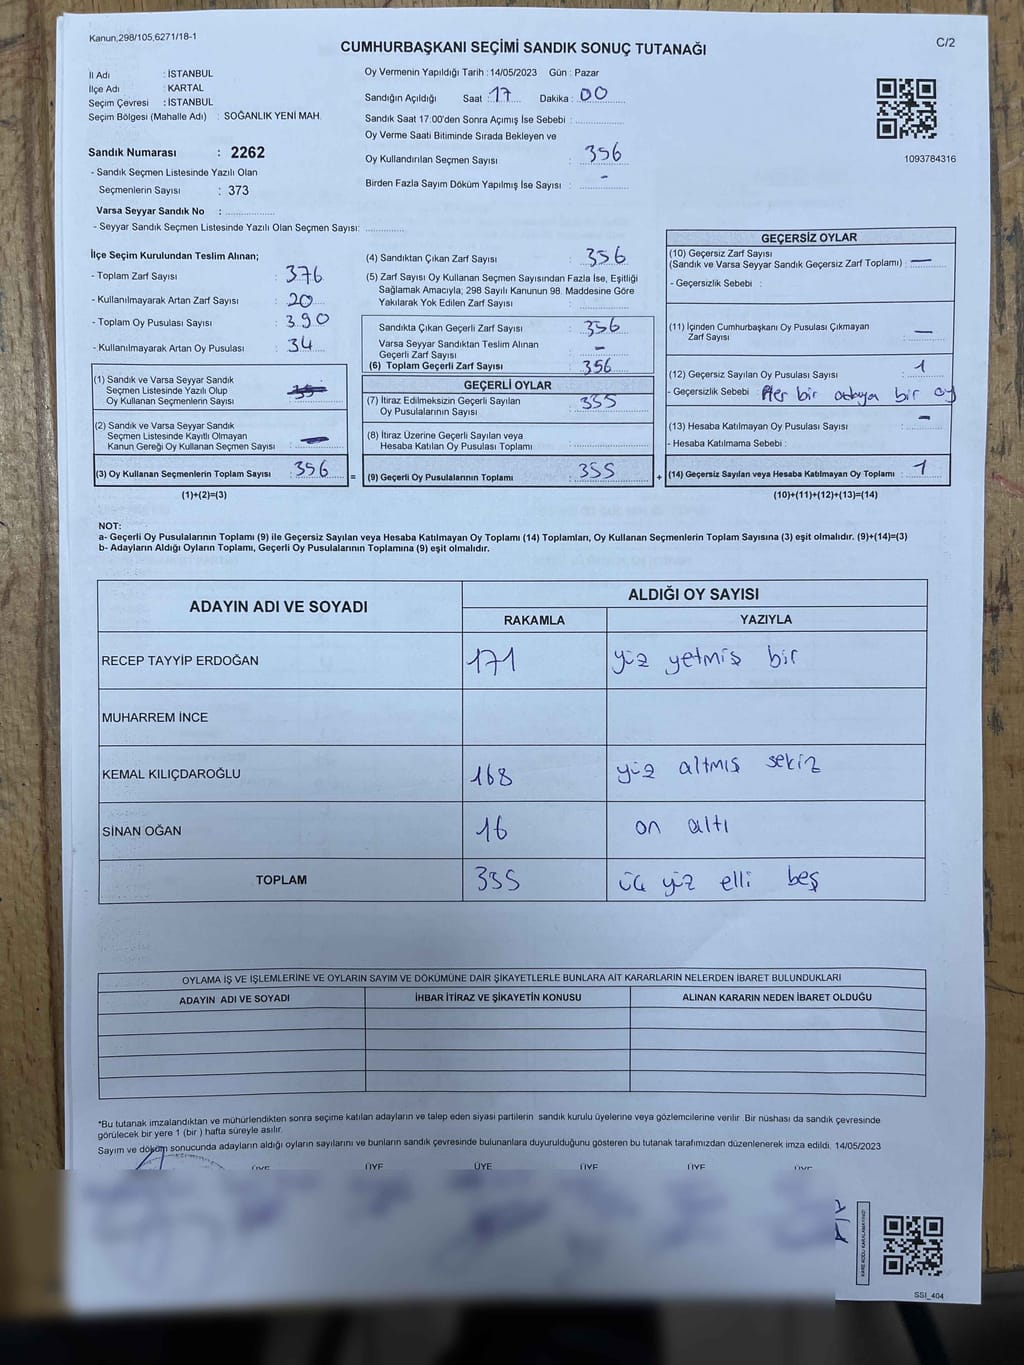 Kanun,298/105,6271/18-1
C/2
CUMHURBAŞKANI SEÇİMİ SANDIK SONUÇ TUTANAĞI
İl Adı : İSTANBUL
İlçe Adı : KARTAL
Seçim Çevresi : İSTANBUL
Seçim Bölgesi (Mahalle Adı) : SOĞANLIK YENİ MAH.
Sandık Numarası : 2262
- Sandık Seçmen Listesinde Yazılı Olan
Seçmenlerin Sayısı : 373
Varsa Seyyar Sandık No : ................
- Seyyar Sandık Seçmen Listesinde Yazılı Olan Seçmen Sayısı: ............
Oy Vermenin Yapıldığı Tarih : 14/05/2023 Gün : Pazar
Sandığın Açıldığı Saat : 17 Dakika : 00
Sandık Saat 17:00'den Sonra Açımış İse Sebebi : ................
Oy Verme Saati Bitiminde Sırada Bekleyen ve
Oy Kullandırılan Seçmen Sayısı : 356
Birden Fazla Sayım Döküm Yapılmış İse Sayısı : -
1093784316
İlçe Seçim Kurulundan Teslim Alınan;
- Toplam Zarf Sayısı : 376
- Kullanılmayarak Artan Zarf Sayısı : 20
- Toplam Oy Pusulası Sayısı : 390
- Kullanılmayarak Artan Oy Pusulası : 34
(1) Sandık ve Varsa Seyyar Sandık
Seçmen Listesinde Yazılı Olup
Oy Kullanan Seçmenlerin Sayısı :
(2) Sandık ve Varsa Seyyar Sandık
Seçmen Listesinde Kayıtlı Olmayan
Kanun Gereği Oy Kullanan Seçmen Sayısı :
(3) Oy Kullanan Seçmenlerin Toplam Sayısı : 356
(1)+(2)=(3)
=
(4) Sandıktan Çıkan Zarf Sayısı : 356
(5) Zarf Sayısı Oy Kullanan Seçmen Sayısından Fazla İse, Eşitliği
Sağlamak Amacıyla; 298 Sayılı Kanunun 98. Maddesine Göre
Yakılarak Yok Edilen Zarf Sayısı :
Sandıkta Çıkan Geçerli Zarf Sayısı : 356
Varsa Seyyar Sandıktan Teslim Alınan
Geçerli Zarf Sayısı : -
(6) Toplam Geçerli Zarf Sayısı : 356
GEÇERLİ OYLAR
(7) İtiraz Edilmeksizin Geçerli Sayılan
Oy Pusulalarının Sayısı : 355
(8) İtiraz Üzerine Geçerli Sayılan veya
Hesaba Katılan Oy Pusulası Toplamı :
(9) Geçerli Oy Pusulalarının Toplamı : 355
+
GEÇERSİZ OYLAR
(10) Geçersiz Zarf Sayısı
(Sandık ve Varsa Seyyar Sandık Geçersiz Zarf Toplamı) : -
- Geçersizlik Sebebi :
(11) İçinden Cumhurbaşkanı Oy Pusulası Çıkmayan
Zarf Sayısı : -
(12) Geçersiz Sayılan Oy Pusulası Sayısı : 1
- Geçersizlik Sebebi Her bir adaya bir oy
(13) Hesaba Katılmayan Oy Pusulası Sayısı : -
- Hesaba Katılmama Sebebi :
(14) Geçersiz Sayılan veya Hesaba Katılmayan Oy Toplamı : 1
(10)+(11)+(12)+(13)=(14)
NOT:
a- Geçerli Oy Pusulalarının Toplamı (9) ile Geçersiz Sayılan veya Hesaba Katılmayan Oy Toplamı (14) Toplamları, Oy Kullanan Seçmenlerin Toplam Sayısına (3) eşit olmalıdır. (9)+(14)=(3)
b- Adayların Aldığı Oyların Toplamı, Geçerli Oy Pusulalarının Toplamına (9) eşit olmalıdır.
ADAYIN ADI VE SOYADI
ALDIĞI OY SAYISI
RAKAMLA YAZIYLA
RECEP TAYYİP ERDOĞAN 171 yüz yetmiş bir
MUHARREM İNCE
KEMAL KILIÇDAROĞLU 168 yüz altmış sekiz
SİNAN OĞAN 16 on altı
TOPLAM 355 üç yüz elli beş
OYLAMA İŞ VE İŞLEMLERİNE VE OYLARIN SAYIM VE DÖKÜMÜNE DAİR ŞİKAYETLERLE BUNLARA AİT KARARLARIN NELERDEN İBARET BULUNDUKLARI
ADAYIN ADI VE SOYADI İHBAR İTİRAZ VE ŞİKAYETİN KONUSU ALINAN KARARIN NEDEN İBARET OLDUĞU
*Bu tutanak imzalandıktan ve mühürlendikten sonra seçime katılan adayların ve talep eden siyasi partilerin sandık kurulu üyelerine veya gözlemcilerine verilir. Bir nüshası da sandık çevresinde
görülecek bir yere 1 (bir ) hafta süreyle asılır.
Sayım ve döküm sonucunda adayların aldığı oyların sayılarını ve bunların sandık çevresinde bulunanlara duyurulduğunu gösteren bu tutanak tarafımızdan düzenlenerek imza edildi. 14/05/2023
ÜYE ÜYE ÜYE ÜYE ÜYE ÜYE
KARE KODU KARALAMAYINIZ!
SSI_404